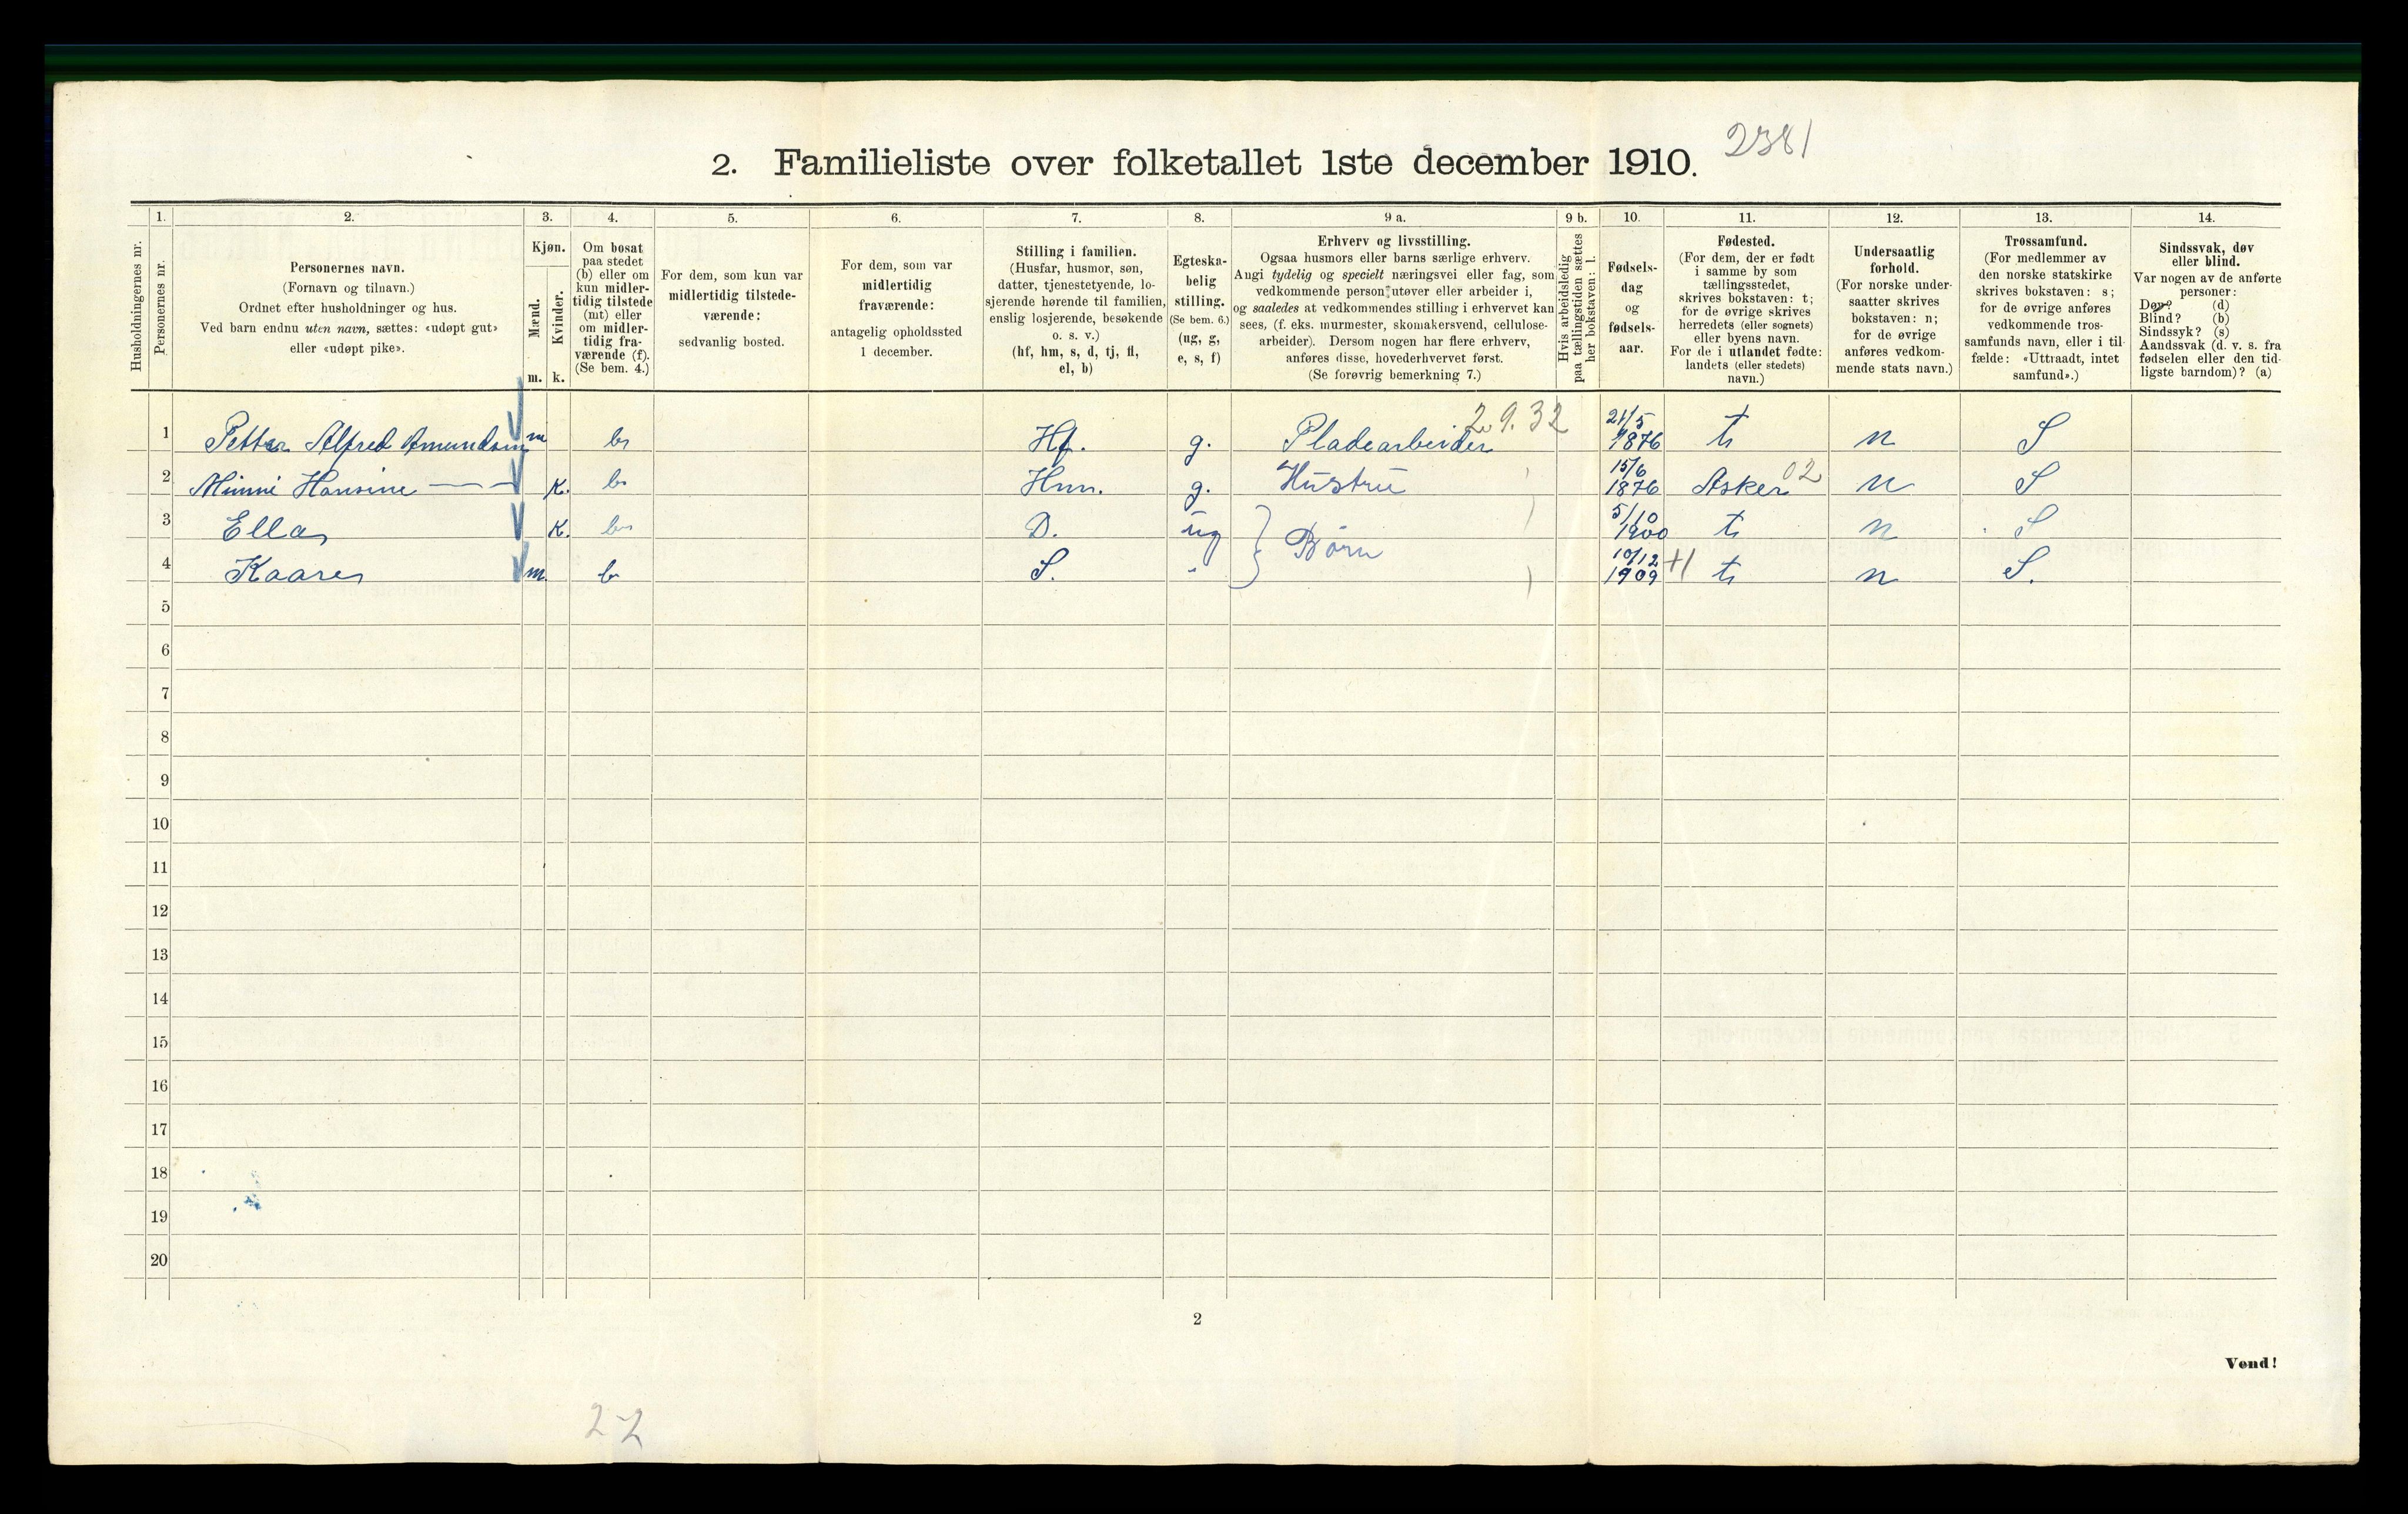 2381
2. Familieliste over folketallet 1ste december 1910.
Husholdningernes nr.
1.
Personernes nr.
2.
Personernes navn.
(Fornavn og tilnavn.)
Ordnet efter husholdninger og hus.
Ved barn endnu uten navn, sættes: «udøpt gut»
eller «udøpt pike».
3.
Kjøn.
Mænd.
Kvinder.
m. k.
4.
Om bosat
paa stedet
(b) eller om
kun midler-
tidig tilstede
(mt) eller
om midler-
tidig fra-
værende (f).
(Se bem. 4.)
5.
For dem, som kun var
midlertidig tilstede-
værende:
sedvanlig bosted.
6.
For dem, som var
midlertidig
fraværende:
antagelig opholdssted
1 december.
7.
Stilling i familien.
(Husfar, husmor, søn,
datter, tjenestetyende, lo-
sjerende hørende til familien,
enslig losjerende, besøkende
o. s. v.)
(hf, hm, s, d, tj, fl,
el, b)
8.
Egteska-
belig
stilling.
(Se bem. 6.)
(ug, g,
e, s, f)
9 a.
Erhverv og livsstilling.
Ogsaa husmors eller barns særlige erhverv.
Angi tydelig og specielt næringsvei eller fag, som
vedkommende person utøver eller arbeider i,
og saaledes at vedkommendes stilling i erhvervet kan
sees, (f. eks. murmester, skomakersvend, cellulose-
arbeider). Dersom nogen har flere erhverv,
anføres disse, hovederhvervet først.
(Se forøvrig bemerkning 7.)
9 b.
Hvis arbeidsledig
paa tællingstiden sættes
her bokstaven: l.
10.
Fødsels-
dag
og
fødsels-
aar.
11.
Fødested.
(For dem, der er født
i samme by som
tællingsstedet,
skrives bokstaven: t;
for de øvrige skrives
herredets (eller sognets)
eller byens navn.
For de i utlandet fødte:
landets (eller stedets)
navn.)
12.
Undersaatlig
forhold.
(For norske under-
saatter skrives
bokstaven: n;
for de øvrige
anføres vedkom-
mende stats navn.)
13.
Trossamfund.
(For medlemmer av
den norske statskirke
skrives bokstaven: s;
for de øvrige anføres
vedkommende tros-
samfunds navn, eller i til-
fælde: «Uttraadt, intet
samfund».)
14.
Sindssvak, døv
eller blind.
Var nogen av de anførte
personer:
Døv? (d)
Blind? (b)
Sindssyk? (s)
Aandssvak (d. v. s. fra
fødselen eller den tid-
ligste barndom)? (a)
1 Petter Alfred Amundsen m b Hf. g. Pladearbeider 2.9.32 21/5 1876 t n S
2 Minni Hansine — — K. b Hm. g. Hustru 15/6 1876 Asker 02 n S
3 Ella K. b D. ug } Børn 5/10 1900 t n S
4 Kaare m b S. " 10/12 1909 +1 t n S.
5
6
7
8
9
10
11
12
13
14
15
16
17
18
19
20
2
Vend!
2-2